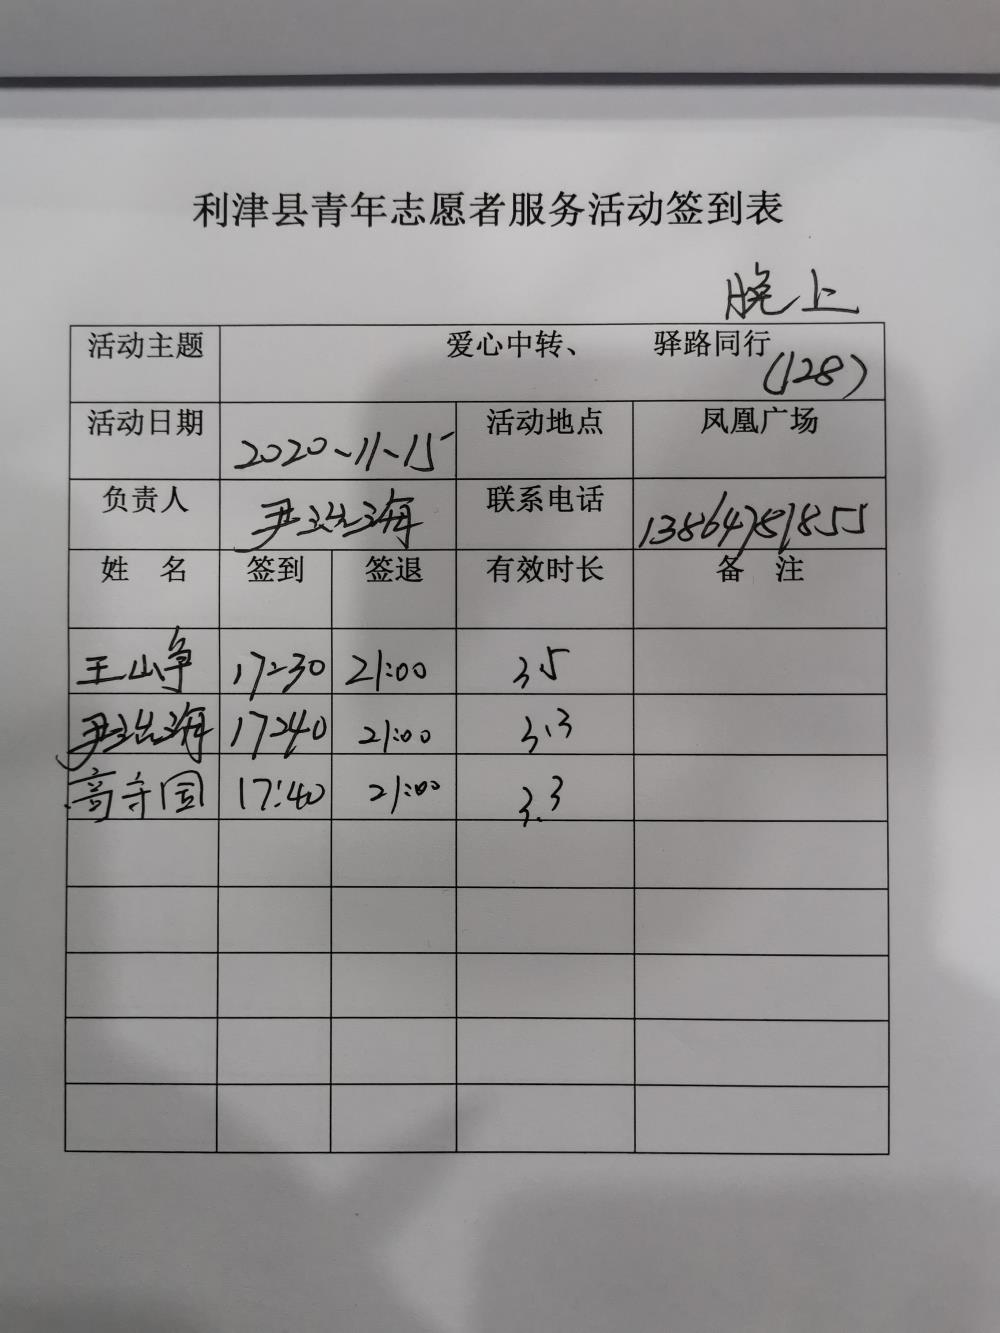 利津县青年志愿者服务活动签到表
晚上
活动主题 爱心中转、 驿路同行 (128)
活动日期 2020-11-15 活动地点 凤凰广场
负责人 尹海 联系电话 13864787855
姓 名 签到 签退 有效时长 备 注
王山争 17:30 21:00 3.5
尹海 17:40 21:00 3.3
高守国 17:40 21:00 3.3